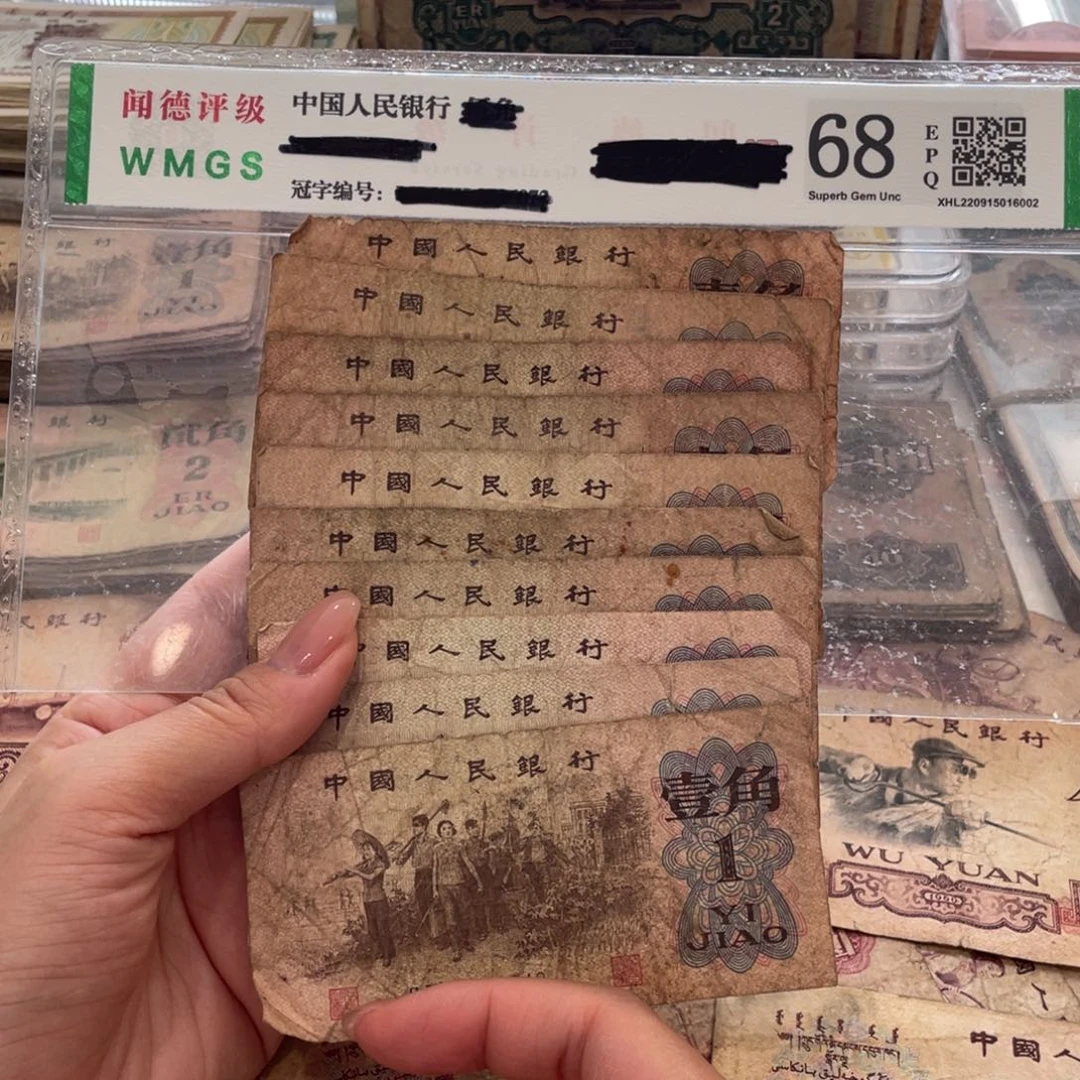 ER
2
闻德评级
WMGS
中国人民银行
冠字编号:
68
Superb Gem Unc
EPQ
XHL220915016002
中國人民銀行
中國人民銀行
中國人民銀行
中國人民銀行
中國人民銀行
中國人民銀行
中國人民銀行
國人民銀行
中國人民銀行
中國人民銀行
壹角
1
YI
JIAO
銀行
壹角
1
YI
JIAO
銀行
貳角
2
ER
JIAO
民銀行
中國人民銀行
WU YUAN
1960
中國人